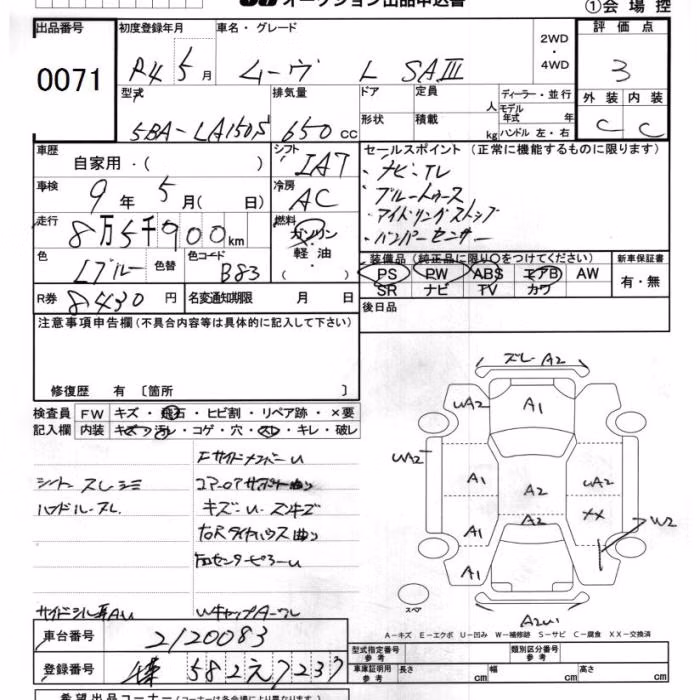 オークション出品申込書
①会場控
出品番号
0071
初度登録年月
R4 5月
車名・グレード
ムーヴ L SAⅢ
2WD・4WD
評価点
3
外装 内装
C C
型式
5BA-LA150S
排気量
650cc
ドア
形状
定員 人
積載 kg
ディーラー・並行
モデル年式 年
ハンドル 左・右
車歴
自家用・( )
シフト
IAT
車検
9年5月( 日)
冷房
AC
走行
8万5千900km
燃料
ガソリン・軽油・( )
色
Lブルー
色替
色コード
B83
R券 8430円
名変通知期限 月 日
セールスポイント (正常に機能するものに限ります)
・ナビ・TV
・ブルートゥース
・アイドリングストップ
・バンパーセンサー
装備品 (純正品に限り○をつけてください)
PS PW ABS エアB AW
SR ナビ TV カワ
新車保証書
有・無
後日品
注意事項申告欄(不具合内容等は具体的に記入して下さい)
修復歴 有〔箇所 〕
検査員記入欄
FW キズ・飛石・ヒビ割・リペア跡・×要
内装 キズ・汚レ・コゲ・穴・スレ・キレ・破レ
シート スレシミ
ハンドルスレ
サイドシル耳AU
FサイドメンバーU
コアロアサポート曲り
キズ・U・ズンキズ
右Rタイヤハウス曲り
右センターピラーU
ズレA2
UA2
A1
UA2
A1
A2
UA2
A2
XX
W2
A1
A1
A2U1
スペア
A-キズ E-エクボ U-凹み W-補修跡 S-サビ C-腐食 XX-交換済
車台番号
2120083
登録番号
582え7237
型式指定番号 参考
類別区分番号 参考
車庫証明用 参考
長さ cm
幅 cm
高さ cm
希望出品コーナー(コーナーは各会場により異なります)